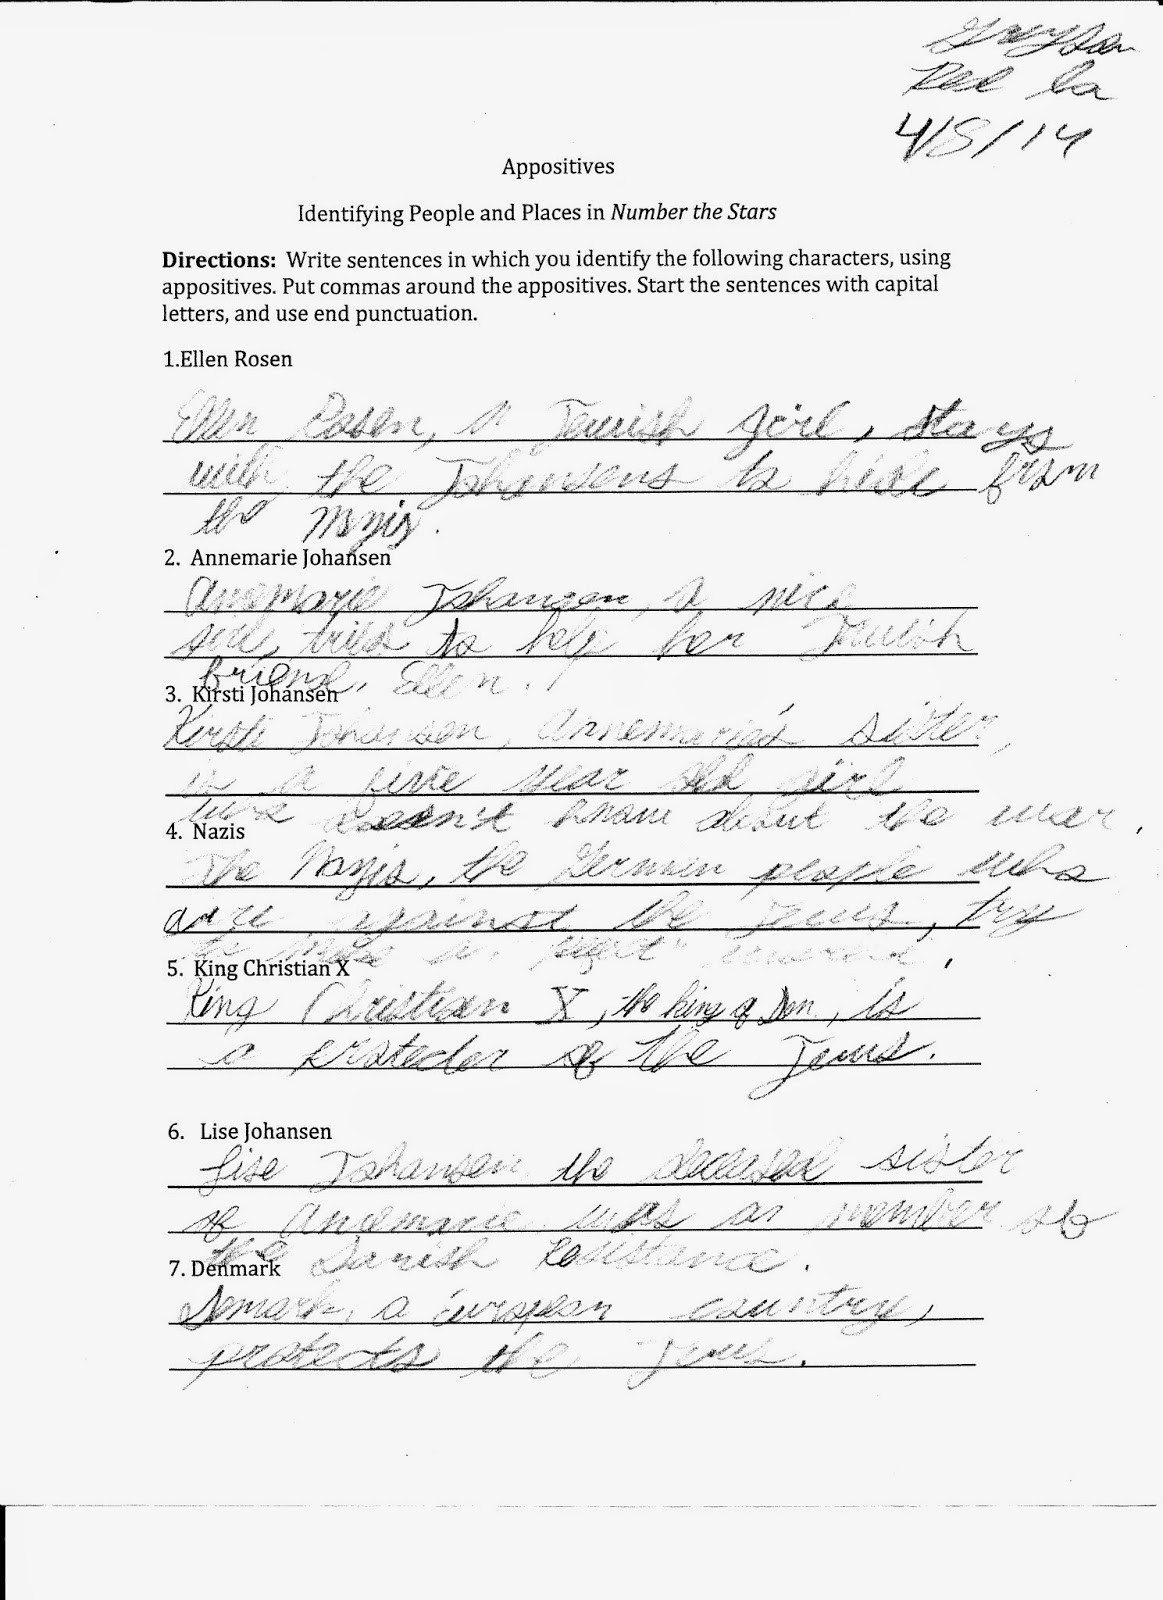 Grayson
Red La
4/8/14
Appositives
Identifying People and Places in Number the Stars
Directions: Write sentences in which you identify the following characters, using
appositives. Put commas around the appositives. Start the sentences with capital
letters, and use end punctuation.
1.Ellen Rosen
Ellen Rosen, a Jewish girl, stays
with the Johansens to hide from
the Nazis.
2. Annemarie Johansen
Annemarie Johansen, a nice
girl, tries to help her Jewish
friend, Ellen.
3. Kirsti Johansen
Kirsti Johansen, Annemarie's sister,
is a five year old girl
who doesn't know about the war.
4. Nazis
The Nazis, the German people who
are against the Jews, try
to make a
5. King Christian X
King Christian X, the king of Den., is
a protecter of the Jews.
6. Lise Johansen
Lise Johansen the deceased sister
of Anemarie was an member of
the Danish Resistance.
7. Denmark
Demark, a european country,
protects the Jews.